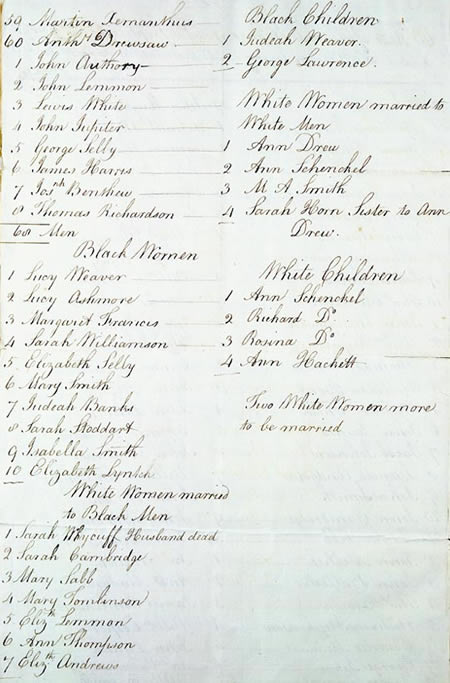 59 Martin Jernanthuis
60 Anthy Drewsaw
1 John Authory
2 John Lemmon
3 Lewis White
4 John Jupiter
5 George Selly
6 James Harris
7 Josph Benshew
8 Thomas Richardson
68 Men
Black Women
1 Lucy Weaver
2 Lucy Ashmore
3 Margaret Francis
4 Sarah Williamson
5 Elizabeth Selly
6 Mary Smith
7 Judeah Banks
8 Sarah Stoddart
9 Isabella Smith
10 Elizabeth Lynsch
White Women married
to Black Men
1 Sarah Whycuff Husband dead
2 Sarah Cambridge
3 Mary Sabb
4 Mary Tomlinson
5 Elizth Lemmon
6 Ann Thompson
7 Elizth Andrews
Black Children
1 Judeah Weaver.
2 George Lawrence.
White Women married to
White Men
1 Ann Drew
2 Ann Schenckel
3 M A Smith
4 Sarah Horn Sister to Ann
Drew.
White Children
1 Ann Schenckel
2 Richard Do
3 Rosina Do
4 Ann Hackett
Two White Women more
to be married